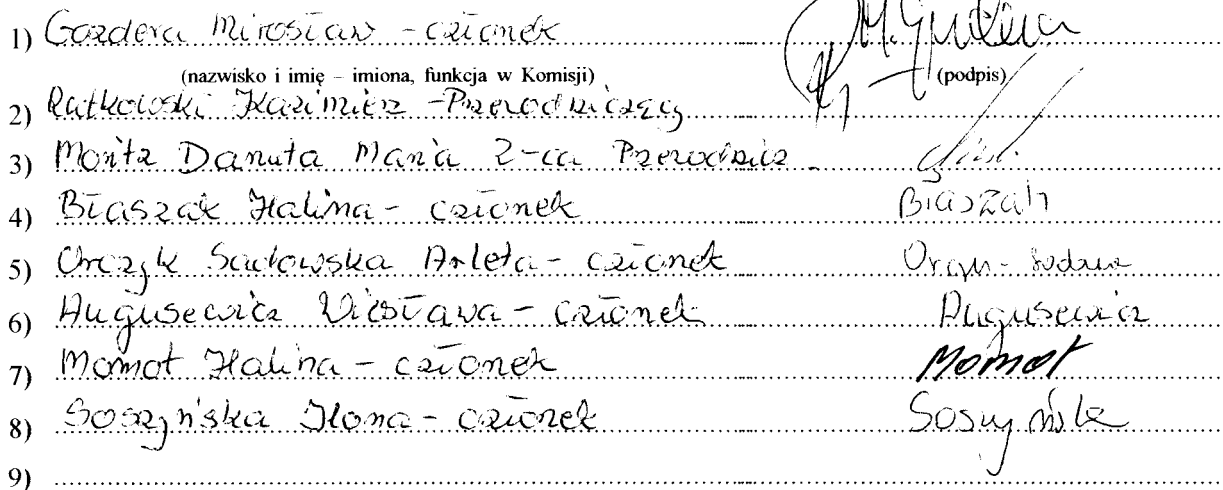 1) Gazdera Mirosław - członek
(nazwisko i imię – imiona, funkcja w Komisji) (podpis)
2) Rutkowski Kazimierz - Przewodniczący
3) Moritz Danuta Maria Z-ca Przewodnicz.
4) Błaszak Halina - członek Błaszak
5) Orczyk Sadowska Arleta - członek
6) Augusewicz Wiesława - członek Augusewicz
7) Momot Halina - członek Momot
8) Soszyńska Ilona - członek Soszyńska
9)